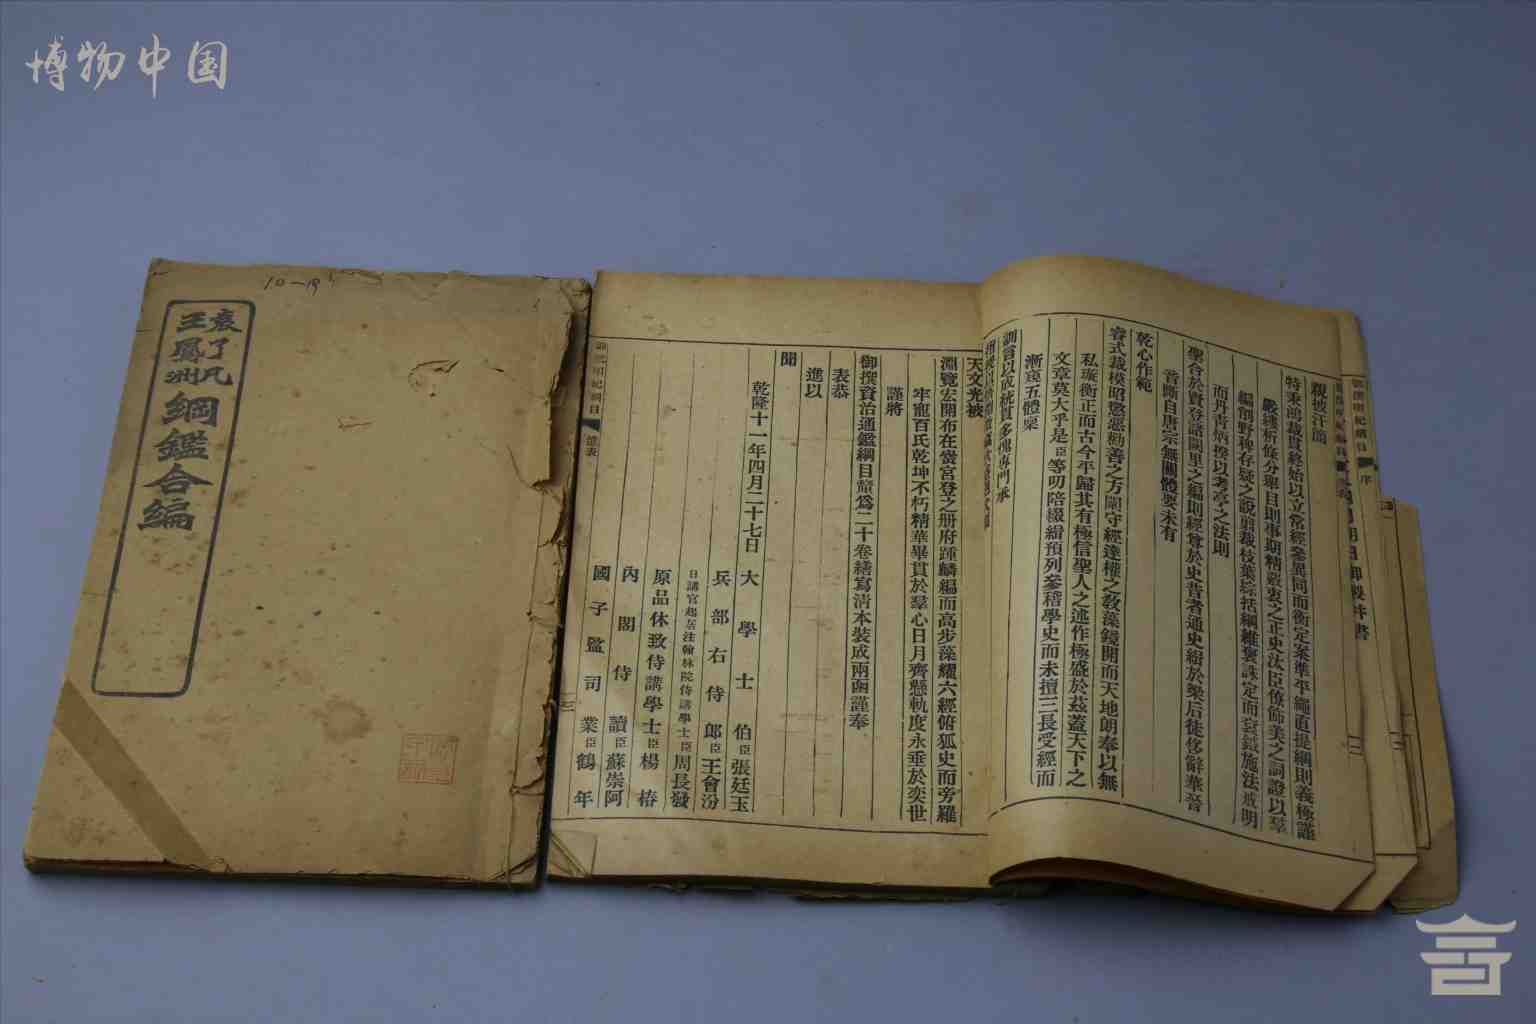 博物中国
10-19
袁了凡
王鳳洲
綱鑑合編
親披汗簡
特秉鴻裁貫終始以立常經參異同而衡定案準平繩直提綱則義極謹
嚴縷析條分舉目則事期精覈衷之正史汰臣僚飾美之詞證以羣
編削野稗存疑之說剪裁枝葉綜括綱維褒誅定而袞鉞施法戒明
而丹青炳揆以考亭之法則
聖合於賢登諸闕里之編則經尊於史昔者通史緝於梁后徒侈辭華晉
書斷自唐宗無關體要未有
乾心作範
睿式裁模昭懲惡勸善之方闡守經達權之教藻鏡開而天地朗奉以無
私璇衡正而古今平歸其有極信聖人之述作極盛於茲蓋天下之
文章莫大乎是臣等叨陪綴緝預列參稽學史而未擅三長受經而
漸窺五體槼
訓言以成統貫多愧專門承
天文光被
淵覽宏開布在黌宮登之册府踵麟編而高步藻耀六經俯狐史而旁羅
牢寵百氏乾坤不朽精華畢貫於羣心日月齊懸軌度永垂於奕世
謹將
御撰資治通鑑綱目釐爲二十卷繕寫清本裝成兩函謹奉
表恭
進以
聞
乾隆十一年四月二十七日
大學士伯臣張廷玉
兵部右侍郎臣王會汾
日講官起居注翰林院侍講學士臣周長發
原品休致侍講學士臣楊椿
內閣侍讀臣蘇崇阿
國子監司業臣鶴年
進表
三
序
二